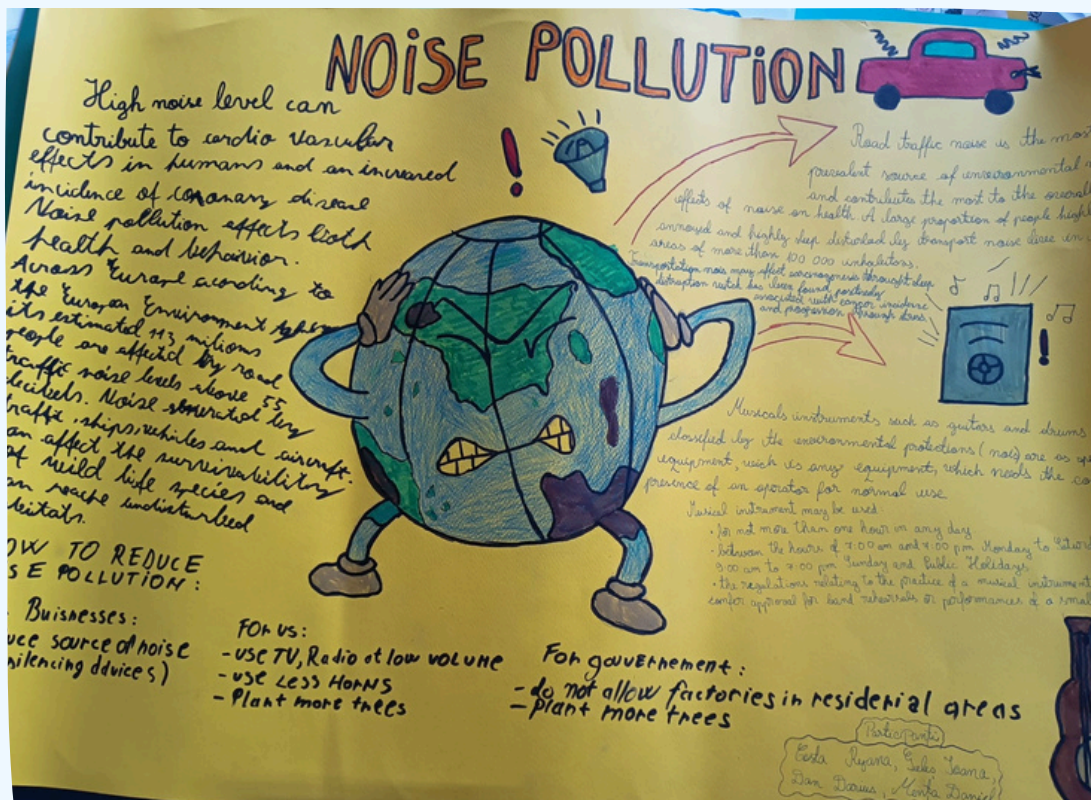 NOISE POLLUTION
High noise level can
contribute to cardio vascular
effects in humans and an increared
incidence of coronary disease
Noise pollution effects both
health and behavior.
Across Europe acording to
the European Environment
its estimated 113 milions
people are affected by road
traffic noise levels above 55
decibels. Noise generated by
traffic, ships, vehicles and aircraft.
an affect the surviveability
of wild life species and
an reache undisturbed
OW TO REDUCE
SE POLLUTION:
Buisnesses:
uce source of noise
silencing ddvices)
FOR us:
-USE TV, Radio at low VOLUME
-USE LESS HORNS
-Plant more trees
For gouvernement:
-do not allow factories in residerial areas
-plant more trees
Road traffic noise is the mos
prevalent source of environmental
and contributes the most to the overall
effects of noise on health. A large proportion of people high
annoyed and highly sleep disturbed by transport noise live in
areas of more than 100 000 inhabitons.
Transportation nois may effect carcinogenesis throught sleep
distruption wited has been found positively
associated with cancer incidence
and progression through stress.
Musicals instruments such as guitars and drums
classified by the environmental protections (nois) are as
equipment, wich is any equipment, which needs the co
presence of an operator for normal use
Musical instrument may be used:
· for not more than one hour in any day
· between the hours of 7:00 am and 7:00 pm Monday to Satur
9:00 am to 7:00 pm Sunday and Public Holidays
· the regulations relating to the practice of a musical instrument
confer approval for band rehearsals or performances of a small
Participanti
Ryana, Ioana,
Dan Darius, Daniel